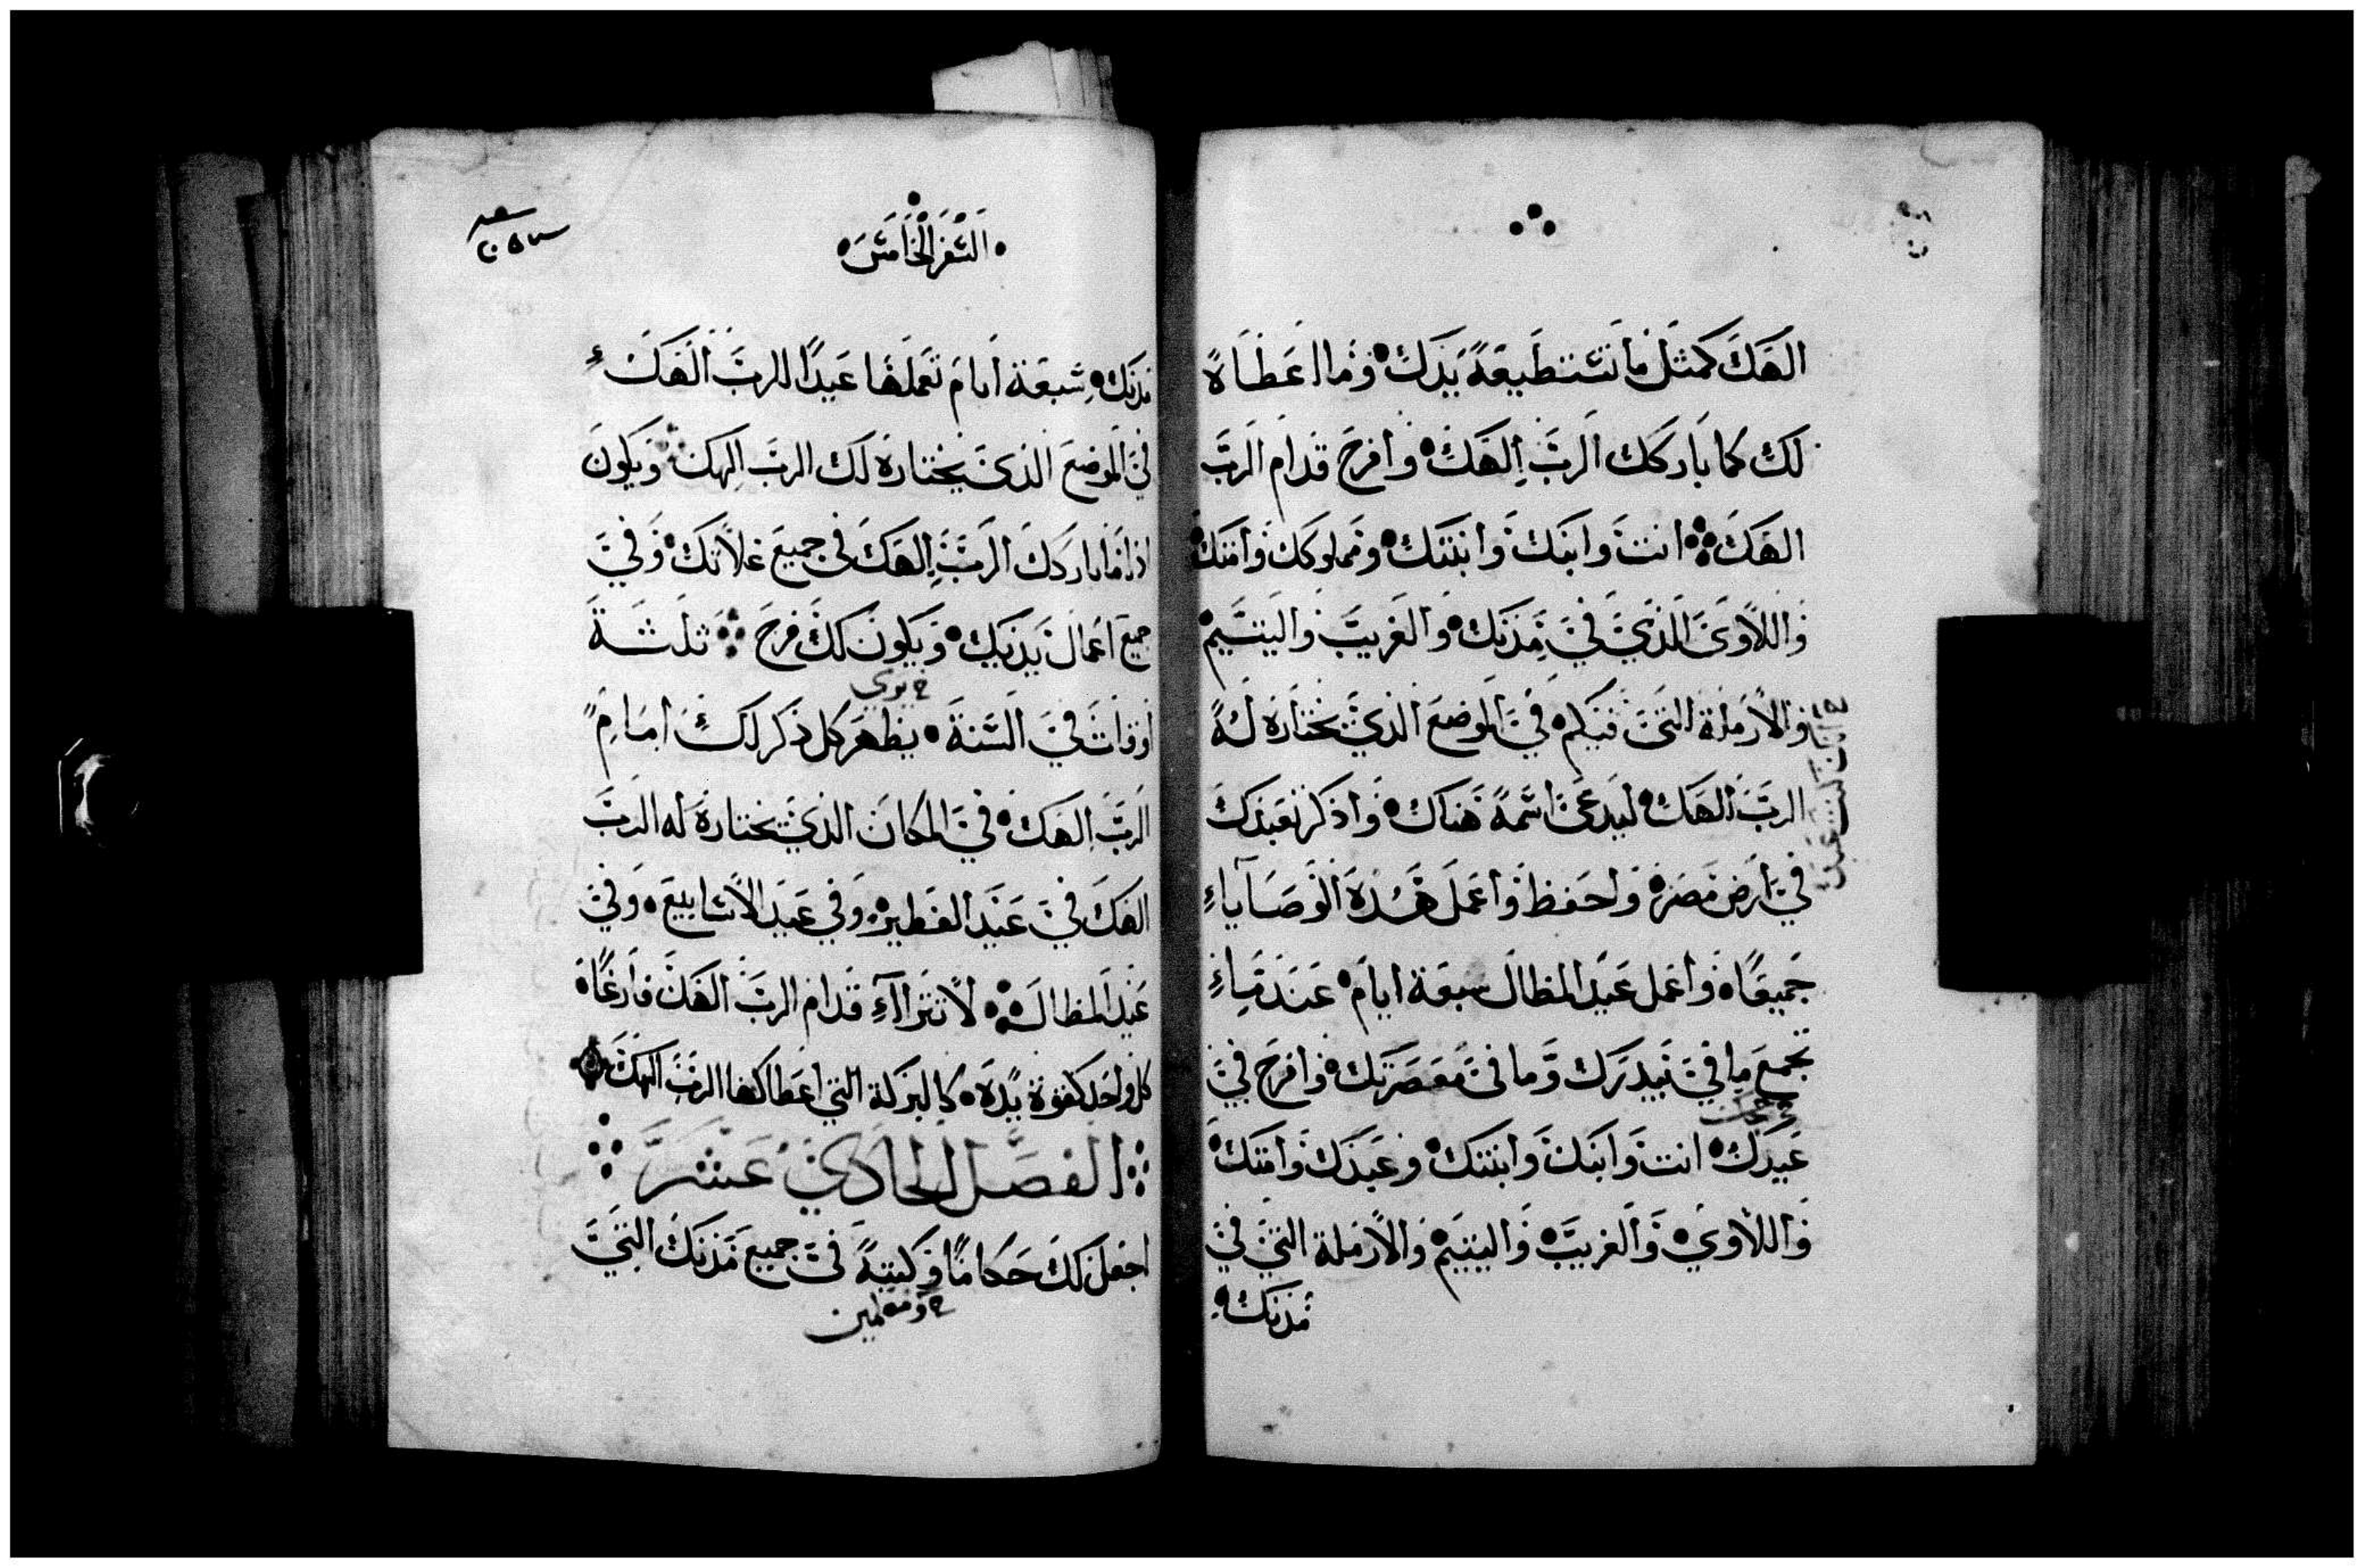 الهَكَ كمثل ما تستطيعهُ يَدَكَ وَما اعَطَاهُ
لكَ كما بَاركك الرَبّ إلهَكَ وافرح قدام الربّ
الهَكَ انت وابنَك وابنتَك ومملوكك وأمتك
وَاللاوىَ الذيَ فيَ مدَنَك وَالغريبّ واليتيم
والأرملة التىَ فيكم فيَ الموضع الذي يختاره لهُ
الربّ الهَك ليدعَىَ اسّمهُ هَناك واذكر تعبدكَ
فيَ أرض مصَر واحفظ واعملَ هَذهَ الوَصَاياءِ
جَميعًا واعمل عَيد المظال سبعَة ايامَ عَندَ مَاءِ
تجمع ما فيَ بَيدرَك وَما فىَ مَعصَرَتك وافرحَ فيَ
عَيدَك انت وَابنَك وَابنتك وعَبدَك وامَتك
وَاللاوي وَالغريبّ وَاليتيم وَالأرملة التيَ فيَ
مُدنك
السَفر الخَامسَ
مدنك سَبعَة أيامَ تعَملهَا عَيدًا للربّ الهَكَ
فيَ الموضعَ الذىَ يختارهَ لكَ الربّ إلهك وَيكونَ
اذا مَا باركَكَ الرَبّ إلهَكَ فى جميعَ غلاتكَ وَفيَ
جميعَ اعَمالَ يَديَك وَيكونَ لكَ فرحَ ثلثَة
خ يري
أوقاتَ فيَ السَنةَ يظهَر كل ذكر لكَ امامَ
الربّ الهَكَ فيَ المكانَ الذيَ يختارهَ له الربّ
الهَكَ فيَ عَيد الفطير وَفي عَيد الأسَابيعَ وَفيَ
عَيد المظالَ لا تترااءِ قدام الربّ الهَكَ فارغًا
كل واحَد كقوة يَدهَ كالبركة التي اعَطاكها الربّ الهكَ
الفصَل الحادَيَ عَشرَ
اجعَل لكَ حَكامًا وَكتبَهً فىَ جميعَ مَدنكَ التيَ
خ ومعلمين